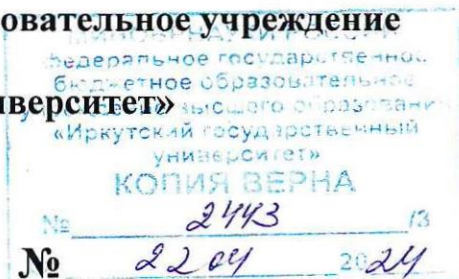 овательное учреждение
МИНОБРНАУКИ РОССИИ
федеральное государственное
бюджетное образовательное
иверситет»
высшего образования
«Иркутский государственный
университет»
КОПИЯ ВЕРНА
№ 2443 /3
№ 22 04 2024